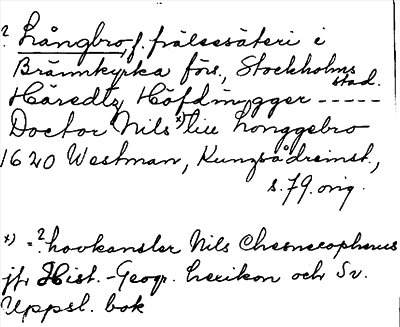 ? Långbro, f. frälsesäteri i
Brännkyrka förs., Stockholms
stad.
Häredtz Höfdingger -----
Doctor Nils x) liu Longgebro
1620 Westman, Kunzrådreinst.,
s. 79. orig.
x) = ? hovkansler Nils Chesnecopherus
jfr Hist.-Geogr. Lexikon och Sv.
Uppsl. bok